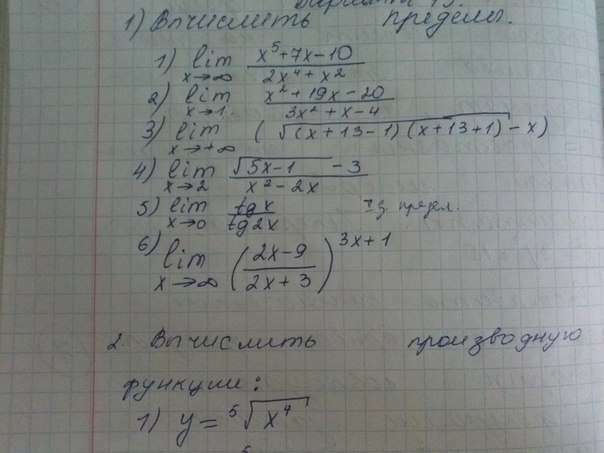 1) Вычислить пределы.
1) lim x→∞ (x⁵+7x-10)/(2x⁴+x²)
2) lim x→1 (x²+19x-20)/(3x²+x-4)
3) lim x→+∞ (√((x+13-1)(x+13+1)-x)
4) lim x→2 (√(5x-1) -3)/(x²-2x)
5) lim x→0 tg x/tg 2x Iз. предел.
6) lim x→∞ ((2x-9)/(2x+3))^(3x+1)
2. Вычислить производную
функции:
1) y = ⁵√x⁴